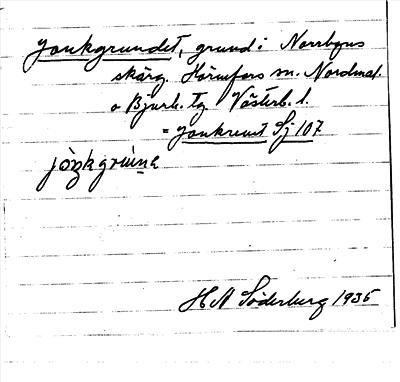 Jonkgrundet, grund i Norrbyns
skärg. Hörnefors sn. Nordmal.
o Bjurh. tg. Västerb. l.
= Jonkrunt Sj 107
jòŋkgrùnɐ
H N Söderberg 1935